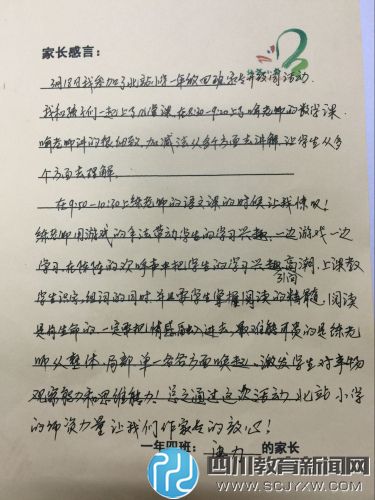 家长感言：
3月18日我参加了北站小学一年级四班家长开放周活动.
我和孩子们一起上了几堂课,在8:30-9:10上了喻老师的数学课.
喻老师讲的很细致,加减法从多个方面去讲解,让学生从多
个方面去理解.
在9:50-10:30上练老师的语文课的时候让我惊叹!
练老师用游戏的手法带动学生的学习兴趣,一边游戏一边
学习,在愉快的欢呼声中把学生的学习兴趣引向高潮.上课教
学生识字,组词的同时并且要学生掌握阅读的精髓,阅读
具有生命的一定要把情感融入进去,最难能可贵的是练老
师从整体,局部,单一各个方面唤起,激发学生对事物
观察能力和思维能力!总之通过这次活动,北站小学
的师资力量让我们作家长的放心!
一年四班： 的家长
四川教育新闻网
WWW.SCJYXW.COM